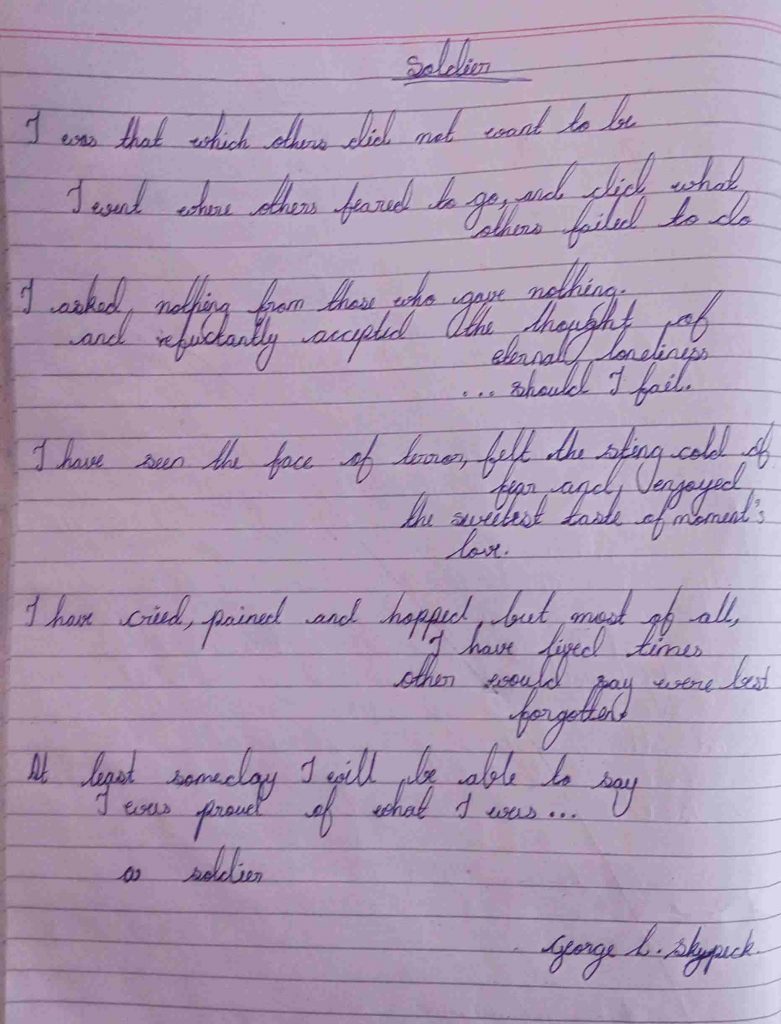 Soldier
I was that which others did not want to be
I went where others feared to go, and did what
others failed to do
I asked nothing from those who gave nothing.
and reluctantly accepted the thought of
eternal loneliness
... should I fail.
I have seen the face of terror, felt the sting cold of
fear and enjoyed
the sweetest taste of moment's
love.
I have cried, pained and hopped, but most of all,
I have lived times
other would say were best
forgotten.
At least someday I will be able to say
I was proud of what I was...
a soldier
George L. Skypeck